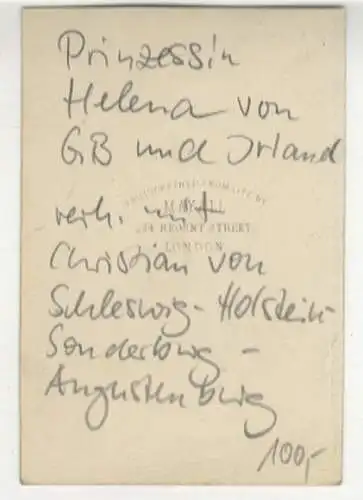 Prinzessin
Helena von
GB und Irland
PHOTOGRAPHED FROM LIFE BY
MAYALL
verh. mit
224 REGENT STREET
LONDON
Christian von
Schleswig-Holstein-
Sonderburg-
Augustenburg
100,-